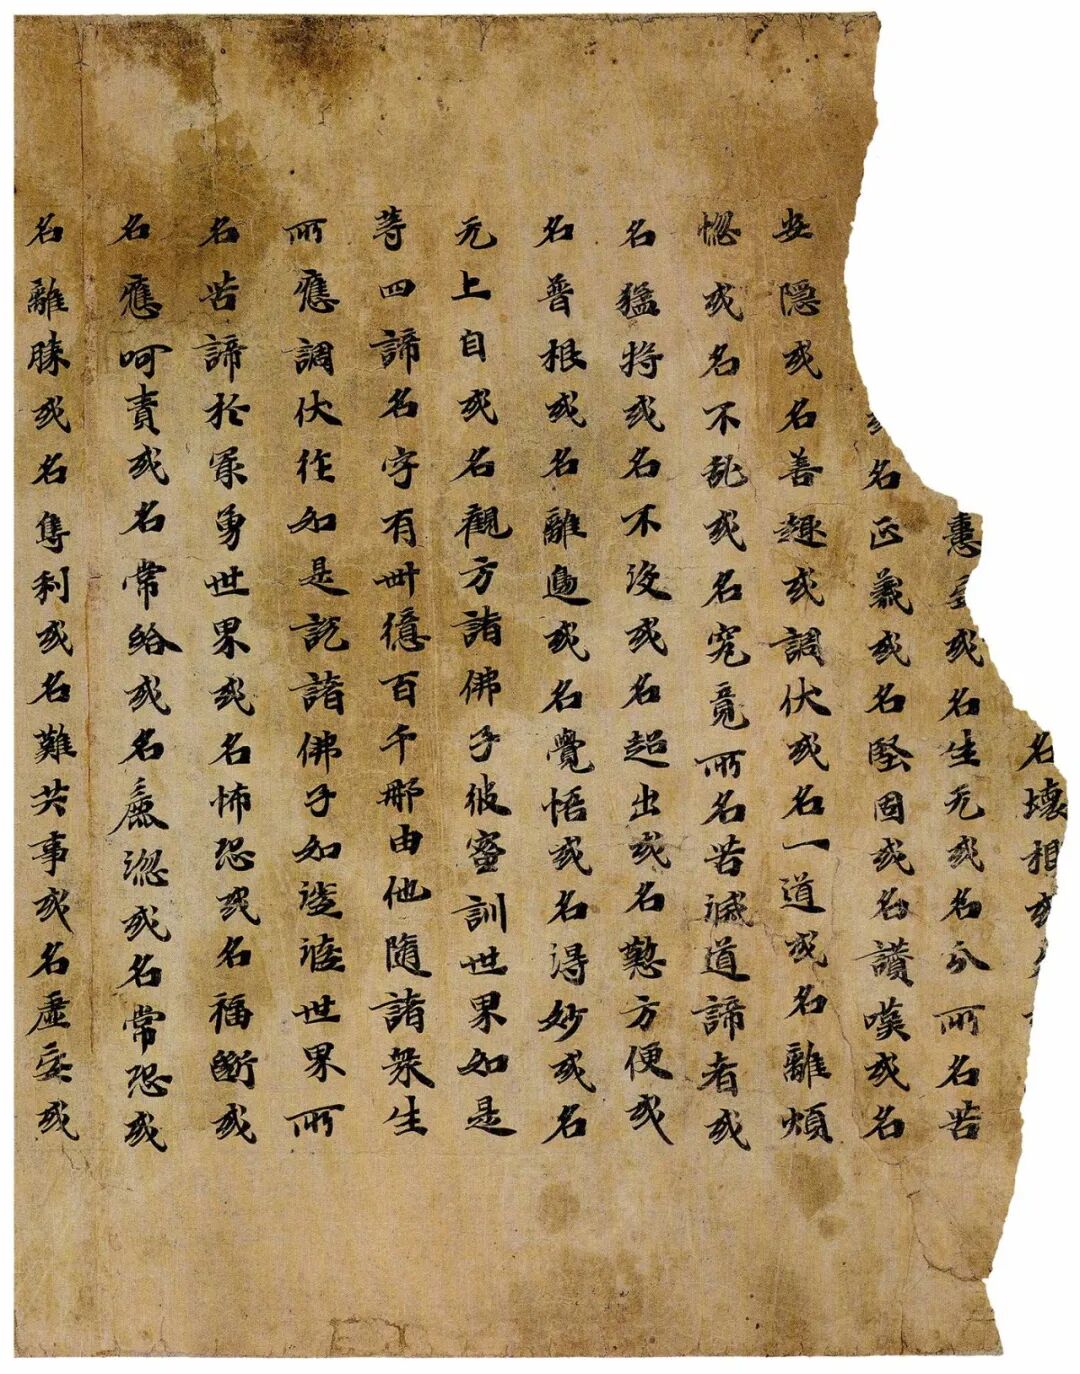 名壞相或
惠或名生无或名分所名苦
或名正義或名堅固或名讚嘆或名
安隱或名善趣或調伏或名一道或名離煩
惱或名不乱或名究竟所名苦滅道諦者或
名猛将或名不没或名超出或名懃方便或
名普根或名離邊或名覺悟或名得妙或名
无上自或名觀方諸佛子彼蜜訓世界如是
等四諦名字有卌億百千那由他隨諸衆生
所應調伏作如是說諸佛子如世界所
名苦諦於最勇世界或名怖恐或名福斷或
名應呵責或名常給或名麁或名常恐或
名離勝或名奪利或名難共事或名虛妄或